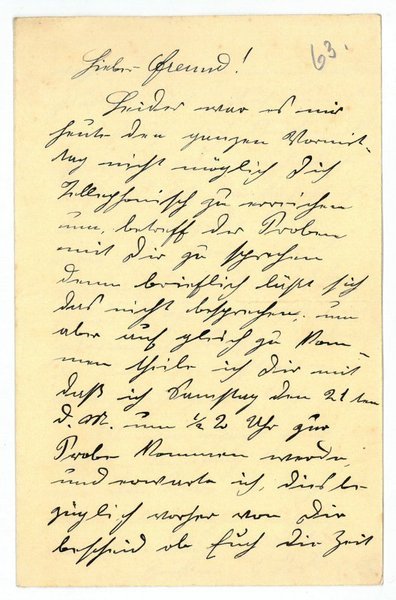 Lieber Freund!
63.
Leider war es mir
heute den ganzen Vormit-
tag nicht möglich Dich
Telephonisch zu erreichen
um, betreff der Proben
mit Dir zu sprechen
denn brieflich läßt sich
das nicht besprechen. um
aber auf gleich zu kom-
men theile ich Dir mit
daß ich Samstag den 21ten
d. M. um ½ 2 Uhr zur
Probe kommen werde,
und erwarte ich, diesbe-
züglich vorher von Dir
bescheid ob Euch die Zeit